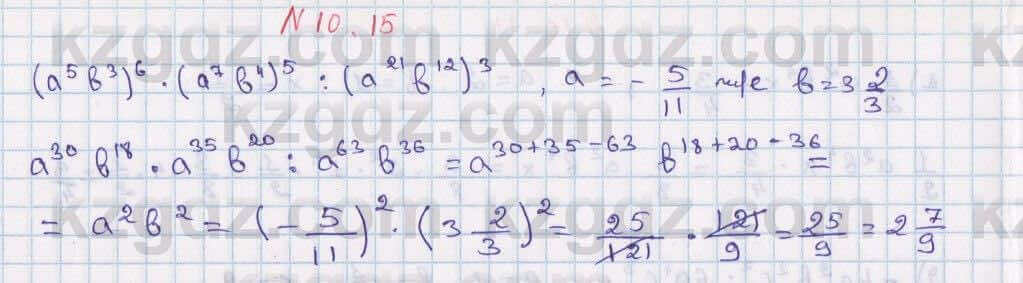 N 10.15
(a⁵в³)⁶ · (a⁷в⁴)⁵ : (a²¹в¹²)³, a = - 5/11 және в = 3 2/3
a³⁰в¹⁸ · a³⁵в²⁰ : a⁶³в³⁶ = a³⁰⁺³⁵⁻⁶³ в¹⁸⁺²⁰⁻³⁶ =
= a²в² = (- 5/11)² · (3 2/3)² = 25/121 · 121/9 = 25/9 = 2 7/9
kzgdz.com kzgdz.com
kzgdz.com kzgdz.com
kzgdz.com kzgdz.com